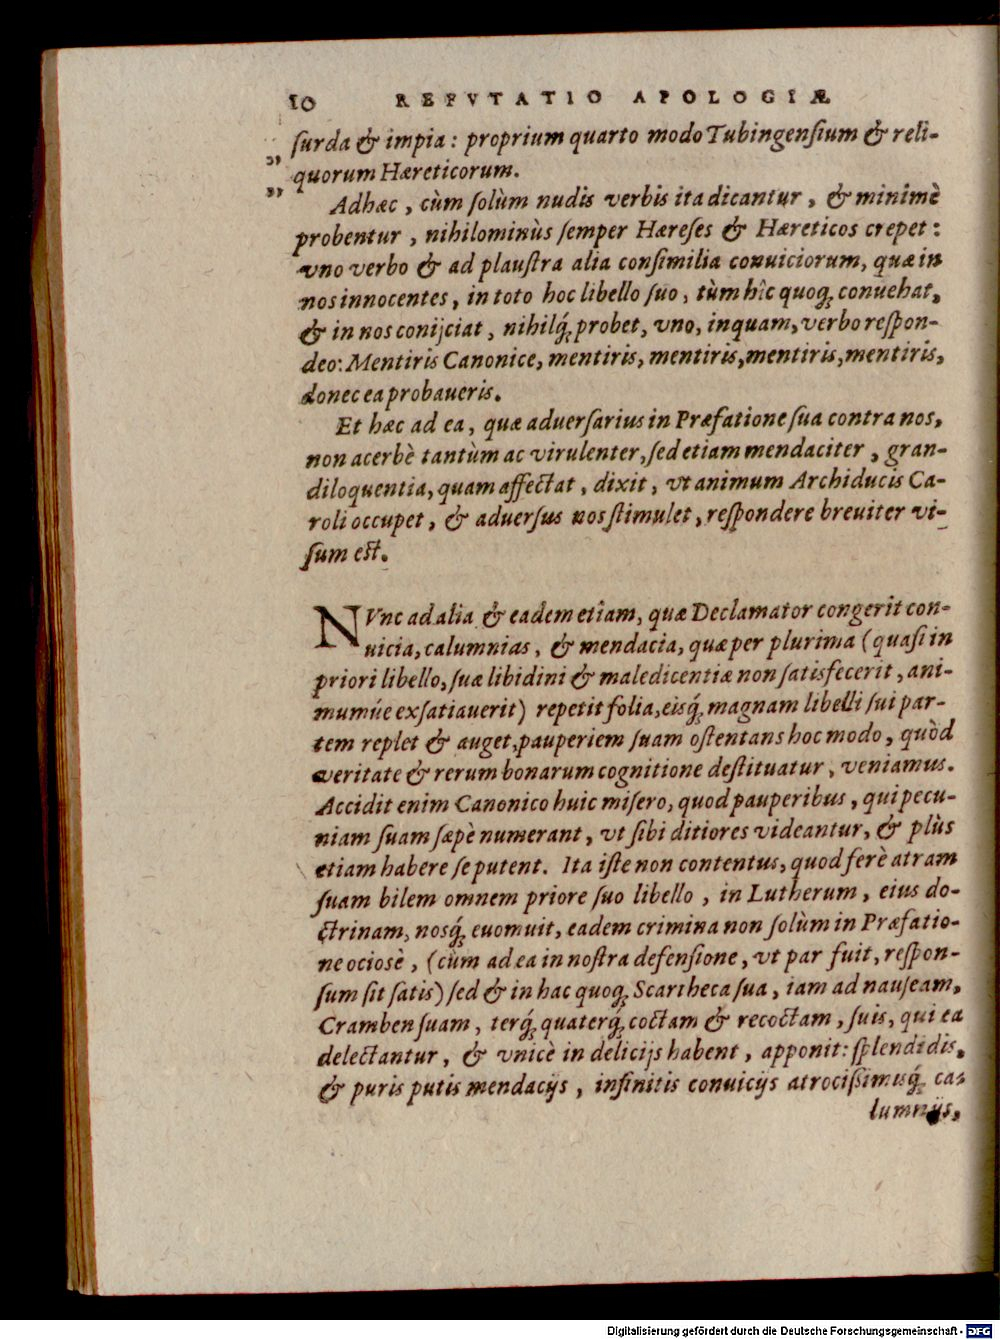 10 REFVTATIO APOLOGIÆ
ſurda & impia: proprium quarto modo Tubingenſium & reli-
„ quorum Hæreticorum.
„ Adhæc, cùm ſolùm nudis verbis ita dicantur, & minimè
probentur, nihilominùs ſemper Hæreſes & Hæreticos crepet:
vno verbo & ad plauſtra alia conſimilia conuiciorum, quæ in
nos innocentes, in toto hoc libello ſuo, tùm hîc quoq́; conuehat,
& in nos conijciat, nihilq́; probet, vno, inquam, verbo reſpon-
deo: Mentiris Canonice, mentiris, mentiris, mentiris, mentiris,
donec ea probaueris.
Et hæc ad ea, quæ aduerſarius in Præfatione ſua contra nos,
non acerbè tantùm ac virulenter, ſed etiam mendaciter, gran-
diloquentia, quam affectat, dixit, vt animum Archiducis Ca-
roli occupet, & aduerſus nos ſtimulet, reſpondere breuiter vi-
ſum eſt.
NVnc ad alia & eadem etiam, quæ Declamator congerit con-
uicia, calumnias, & mendacia, quæ per plurima (quaſi in
priori libello, ſuæ libidini & maledicentiæ non ſatisfecerit, ani-
mumúe exſatiauerit) repetit folia, eisq́; magnam libelli ſui par-
tem replet & auget, pauperiem ſuam oſtentans hoc modo, quòd
veritate & rerum bonarum cognitione deſtituatur, veniamus.
Accidit enim Canonico huic miſero, quod pauperibus, qui pecu-
niam ſuam ſæpè numerant, vt ſibi ditiores videantur, & plùs
etiam habere ſe putent. Ita iſte non contentus, quod ferè atram
ſuam bilem omnem priore ſuo libello, in Lutherum, eius do-
ctrinam, nosq́; euomuit, eadem crimina non ſolùm in Præfatio-
ne ociosè, (cùm ad ea in noſtra defenſione, vt par fuit, reſpon-
ſum ſit ſatis) ſed & in hac quoq; Scartheca ſua, iam ad nauſeam,
Cramben ſuam, terq́; quaterq́; coctam & recoctam, ſuis, qui ea
delectantur, & vnicè in delicijs habent, apponit: ſplendidis,
& puris putis mendacijs, infinitis conuicijs atrocißimisq́; ca-
lumnijs,
Digitalisierung gefördert durch die Deutsche Forschungsgemeinschaft - DFG